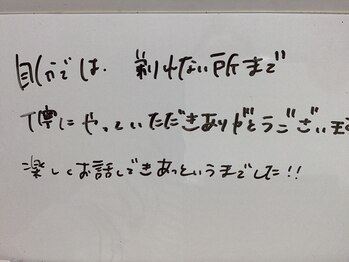 自分では、剃れない所まで
丁寧にやっていただきありがとうございます
楽しくお話しできあっというまでした!!